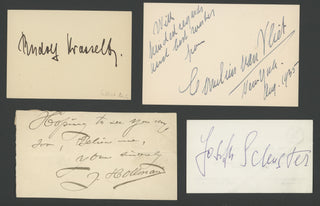 Rudolf Krasselt
With
kindest regards
and best wishes
from
Cornelius Van Vliet
New York
Aug. 1935
Hoping to see you very
soon, Believe me,
yours sincerely
J Hollman
Joseph Schuster